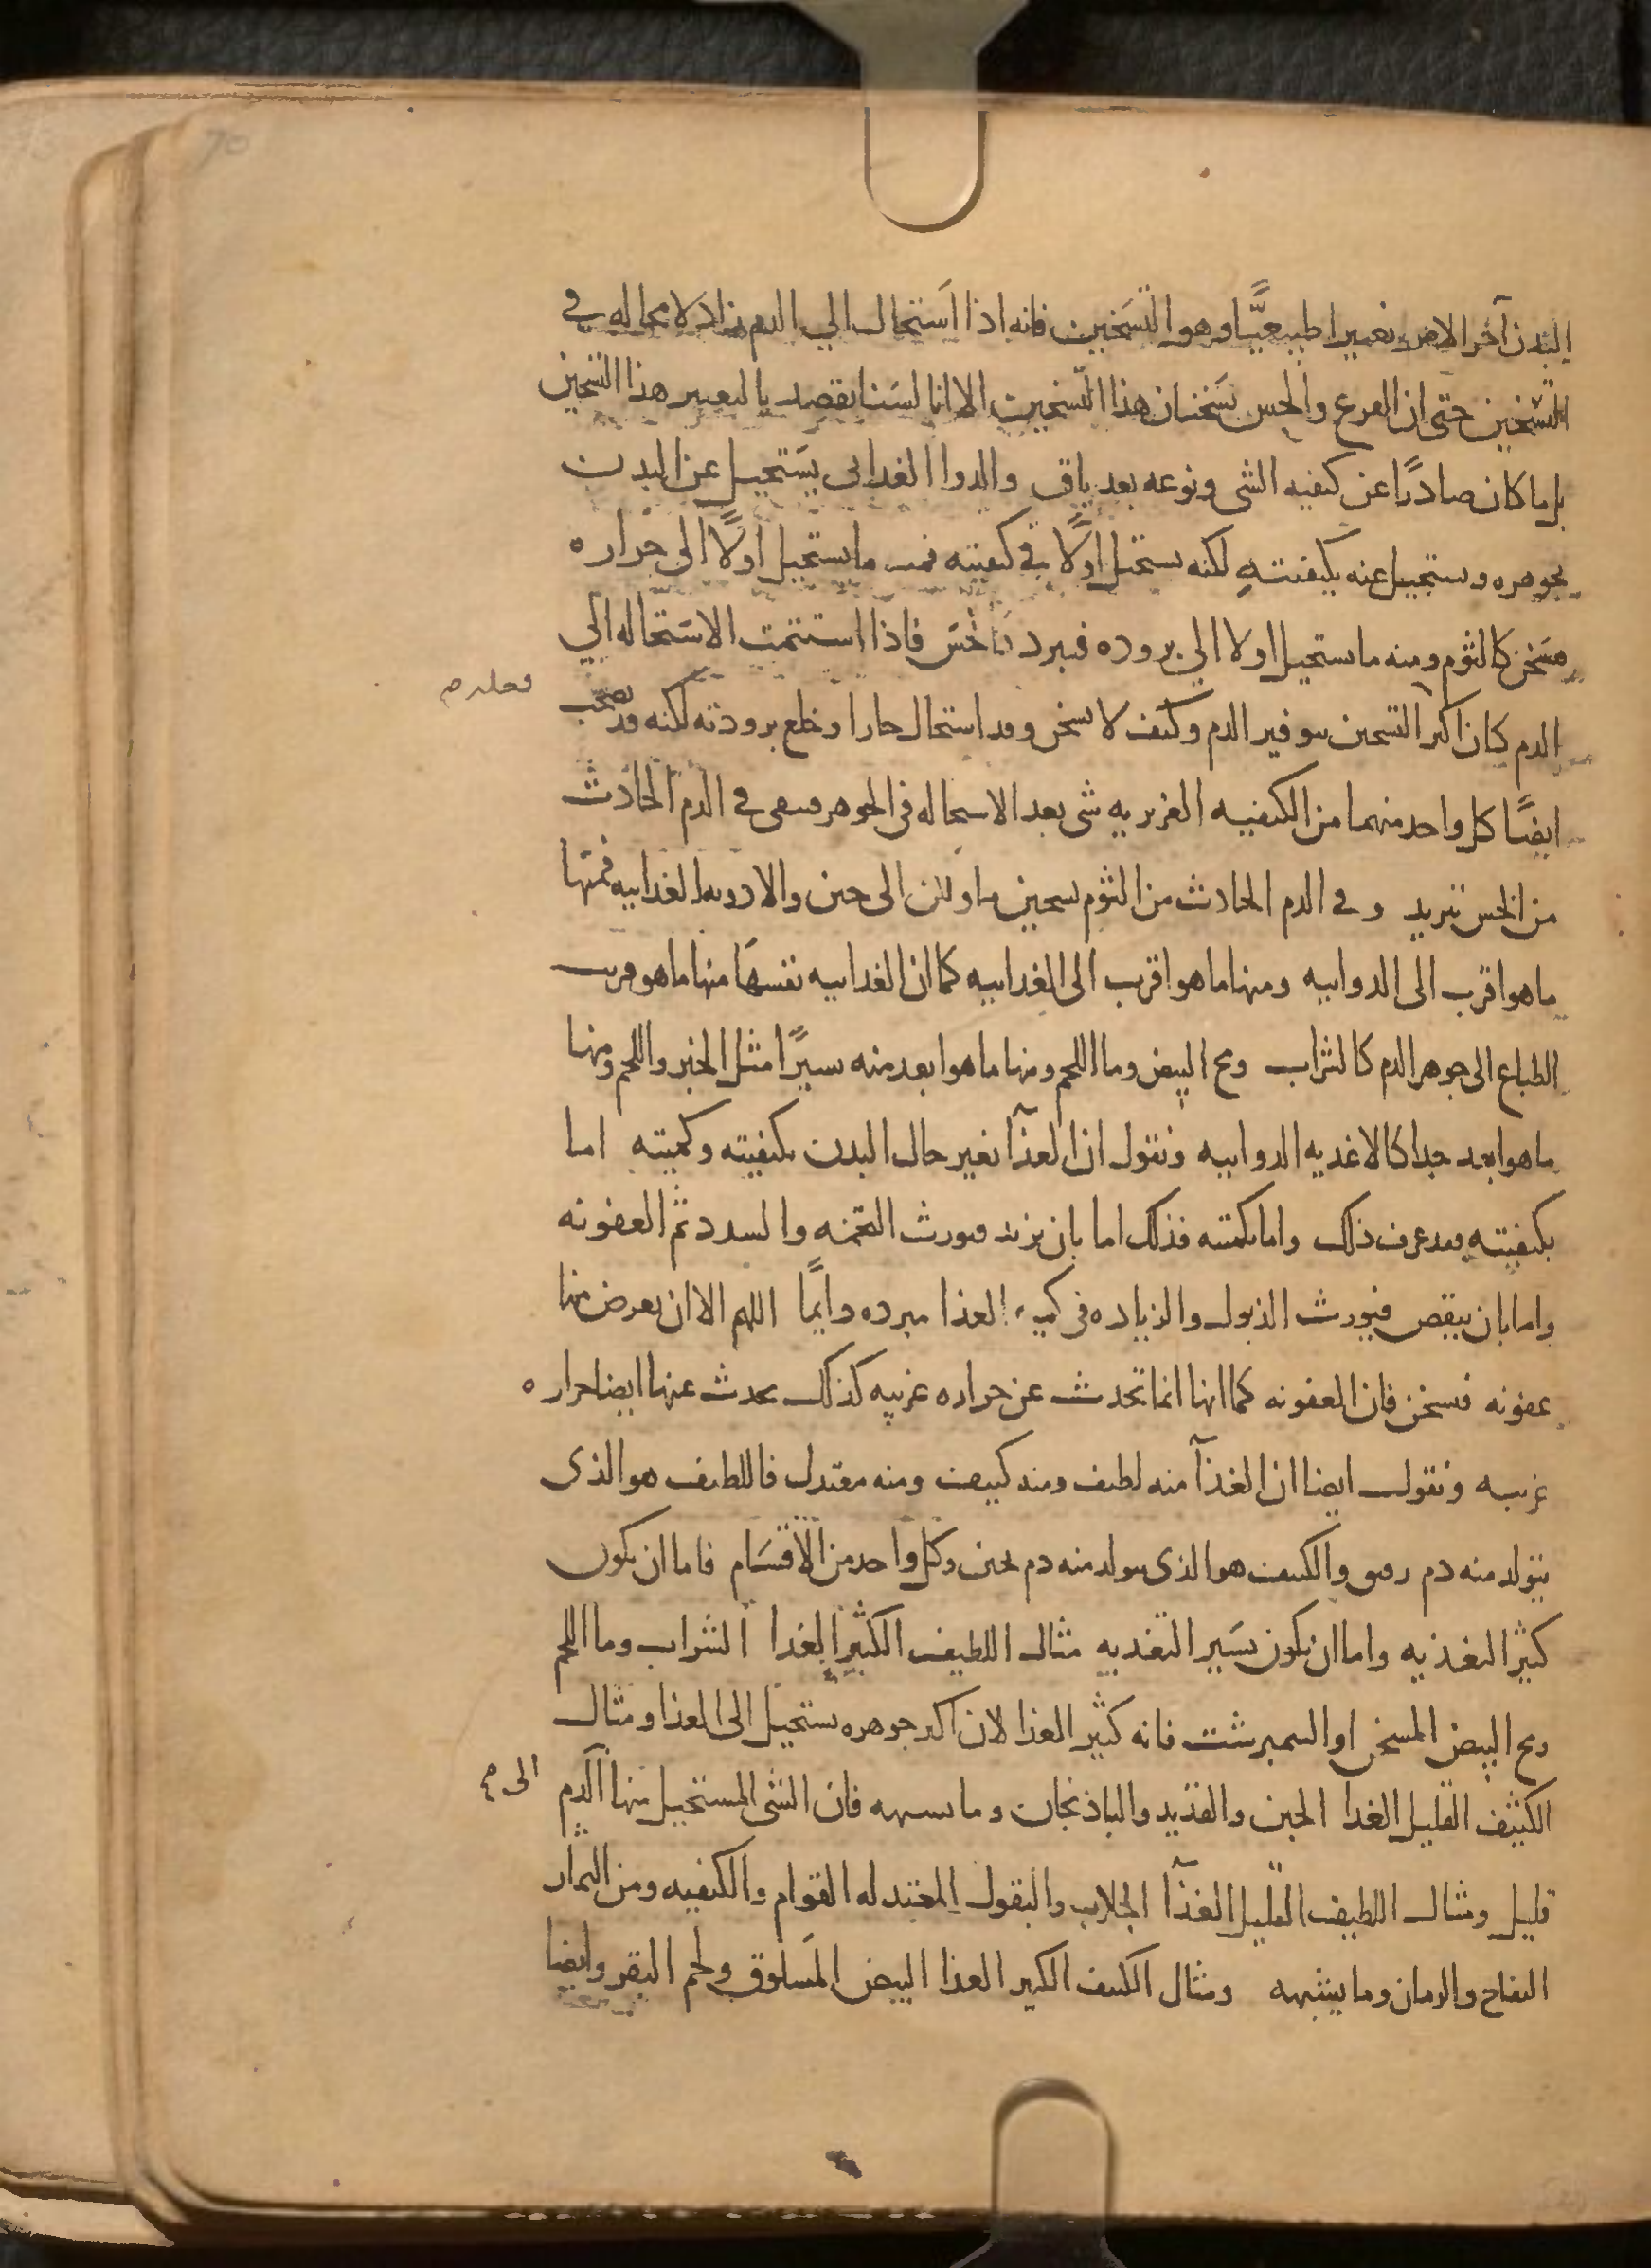 70
البدن آخر الامر تغييرا طبيعيًّا وهو التسخين فانه اذا استحال الي الدم زاد لا محاله في
التسخين حتى ان القرع والخس يسخنان هذا التسخين الا انا لسنا نقصد بالتغيير هذا التسخين
بل ما كان صادرًا عن كيفيه الشى ونوعه بعد باق والدوا الغدايى يستحيل عن البدن
بجوهره ويستحيل عنه بكيفيته لكنه يستحيل اولًا في كيفيته فمنه ما يستحيل اولًا الى حراره
فيسخن كالثوم ومنه ما يستحيل اولا الي بروده فيبرد كالخس فاذا استتمت الاستحاله الي
الدم كان اكثر التسخين بتوفير الدم وكيف لا يسخن وقد استحال حارا وخلع برودته لكنه قد يصحب
فعله م
ايضًا كل واحد منهما من الكيفيه الغريزيه شى بعد الاستحاله في الجوهر فيبقى في الدم الحادث
من الخس تبريد وفي الدم الحادث من الثوم تسخين ما ولكن الى حين والادويه الغداييه فمنها
ما هو اقرب الى الدواييه ومنها ما هو اقرب الى الغداييه كما ان الغداييه نفسها منها ما هو قريب
الطباع الى جوهر الدم كالشراب ومح البيض وما اللحم ومنها ما هو ابعد منه يسيرًا مثل الخبز واللحم ومنها
ما هو ابعد جدا كالاغديه الدواييه ونقول ان الغذآ يغير حال البدن بكيفيته وكميته اما
بكيفيته فقد عرف ذلك واما بكميته فذلك اما بان يزيد فيورث التخمه والسدد ثم العفونه
واما بان ينقص فيورث الذبول والزياده في كميه الغذا مبرده دايمًا اللهم الا ان يعرض منها
عفونه فيسخن فان العفونه كما انها انما تحدث عن حراره غريبه كذلك يحدث عنها ايضا حراره
غريبه ونقول ايضا ان الغذآ منه لطيف ومنه كثيف ومنه معتدل فاللطيف هو الذى
يتولد منه دم رقيق والكثيف هو الذى يتولد منه دم ثخين وكل واحد من الاقسام فاما ان يكون
كثير التغذيه واما ان يكون يسير التغديه مثال اللطيف الكثير الغدا الشراب وما اللحم
ومح البيض المسخن او النيمبرشت فانه كثير الغذا لان اكثر جوهره يستحيل الى الغذا ومثال
الكثيف القليل الغدا الجبن والقديد والباذنجان وما يشبهه فان الشى المستحيل منها الدم
الى م
قليل ومثال اللطيف القليل الغذآ الجلاب والبقول المعتدله القوام والكيفيه ومن الثمار
التفاح والرمان وما يشبهه ومثال الكثيف الكثير الغذا البيض المسلوق ولحم البقر وايضا